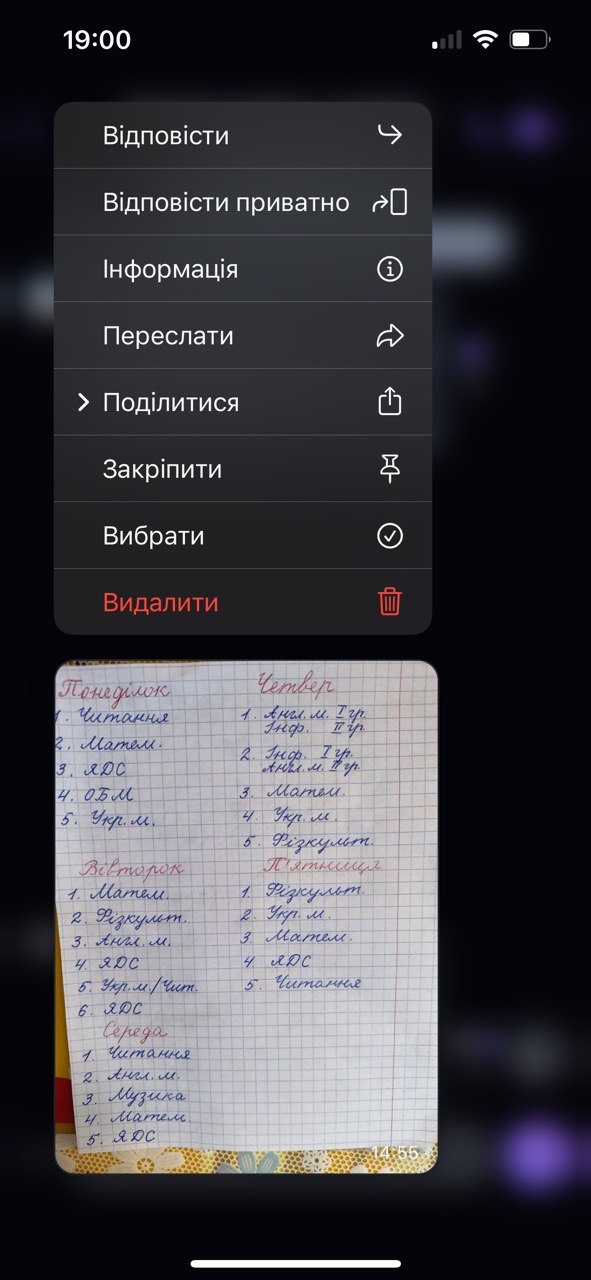 19:00
Відповісти
Відповісти приватно
Інформація
Переслати
Поділитися
Закріпити
Вибрати
Видалити
Понеділок
1. Читання
2. Матем.
3. ЯДС
4. ОБМ
5. Укр.м.
Вівторок
1. Матем.
2. Фізкульт.
3. Англ.м.
4. ЯДС
5. Укр.м/Чит.
6. ЯДС
Середа
1. Читання
2. Англ.м.
3. Музика
4. Матем.
5. ЯДС
Четвер
1. Англ.м. I гр.
Інф. II гр.
2. Інф. I гр.
Англ.м. II гр.
3. Матем.
4. Укр.м.
5. Фізкульт.
П'ятниця
1. Фізкульт.
2. Укр.м.
3. Матем.
4. ЯДС
5. Читання
14:55